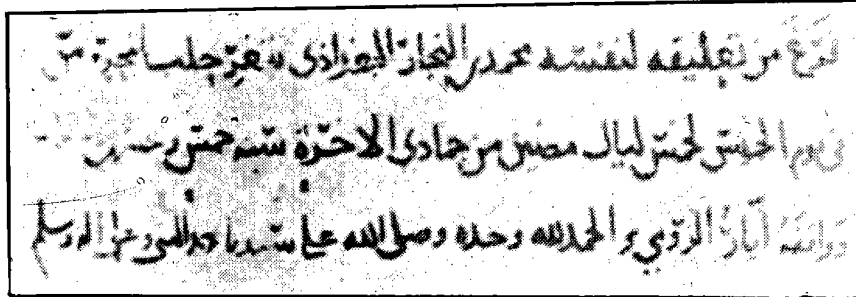 فرغ من تعليقه لنفسه محمد بن النجار البغدادي بثغر حلب
في يوم الخميس لخمس ليال مضين من جمادى الاخرة سنة خمس و
ووافقه أيار الرومي والحمد لله وحده وصلى الله على سيدنا محمد النبي وعلى اله وسلم